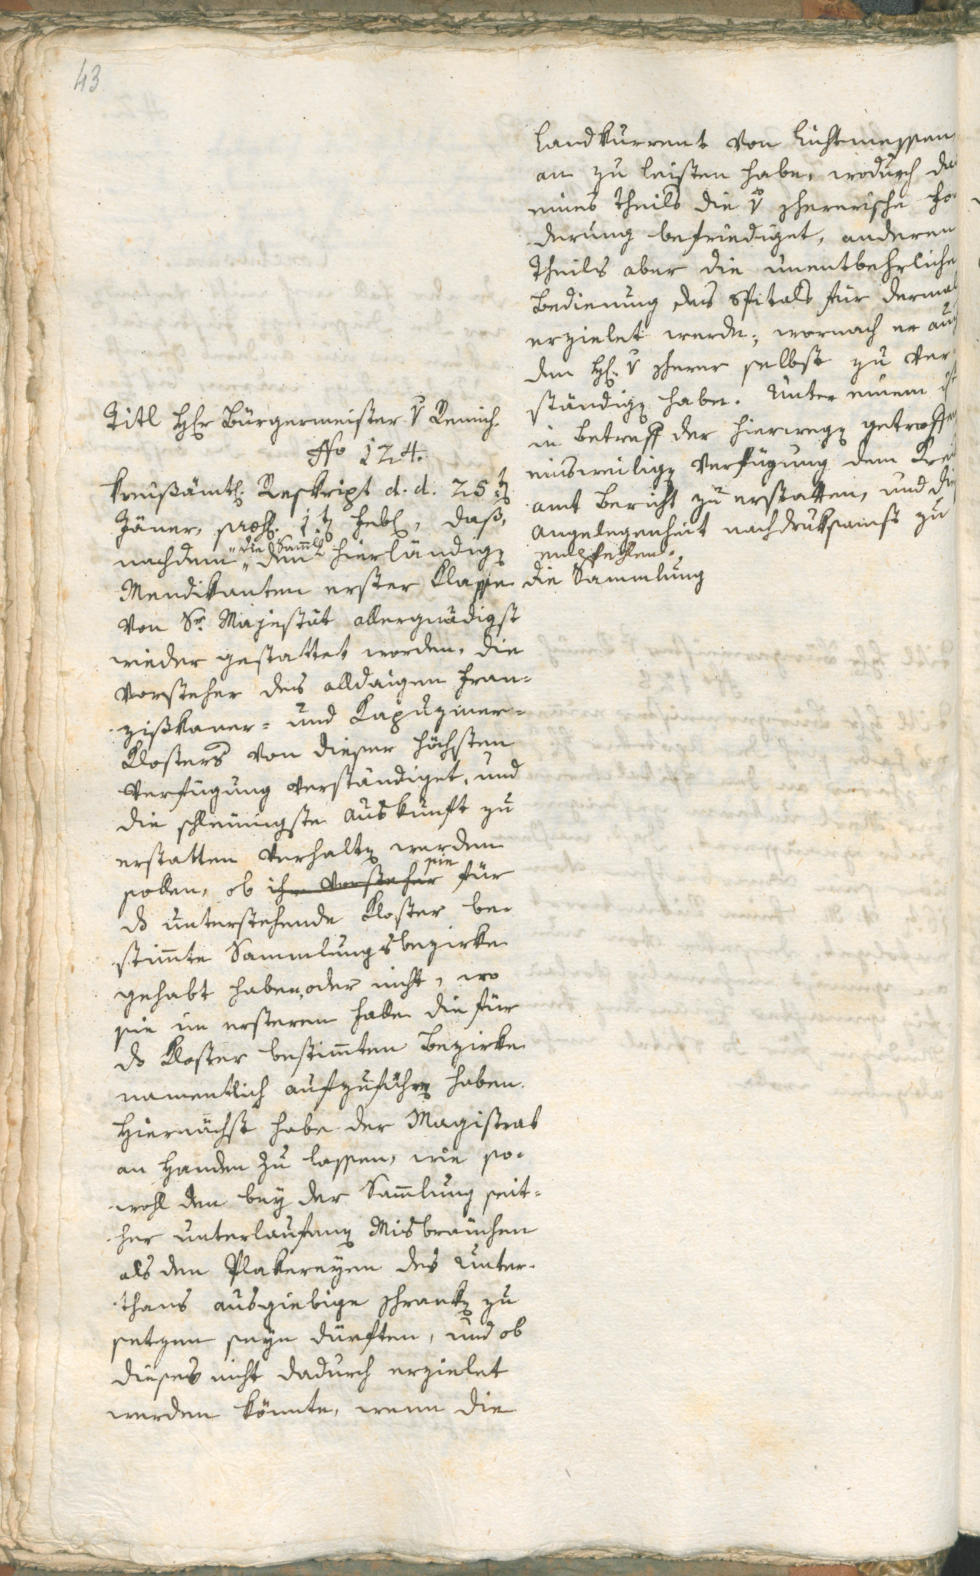 43
Titl H[er]r Bürgermeister v Remich.
No 124.
Kreisämtl. Reskript d. d. 25t
Jäner, praes. 1t Febr., daß,
nachdem „die Sammlung den hierländig
Mendikanten erster Klasse
von Sr. Majestät allergnädigst
wieder gestattet worden, die
Vorsteher des alldaigen Fran=
ziskaner= und Kapuziner=
Klosters von dieser höchsten
Verfügung verständiget, und
die schleunigste Auskunft zu
erstatten verhalt werden
sollen, ob ihr Vorsteher sie für
ds unterstehende Kloster be=
stimmte Sammlungsbezirke
gehabt haben, oder nicht, wo
sie im ersteren Falle die für
ds Kloster bestimmten Bezirke
namentlich aufzuführn haben.
Hiernächst habe der Magistrat
an Handen zu lassen, wie so=
wohl den bey der Sammlung seit=
her unterlaufenen Misbräuchen
als den Plakereyen des Unter=
thans ausgiebige Schrank zu
setzen seyn dürften, und ob
dieses nicht dadurch erzielet
werden könnte, wenn die
Landkurrent von Lichtmessen
an zu leisten habe, wodurch da
eines Theils die v Scherrische Fo=
derung befriediget, anderen
Theils aber die unentbehrliche
Bedienung des Spitals für dermal
erzielet werde; wornach er auch
den H. v Scherer selbst zu ver=
ständig habe. Unter einem ist
in Betreff der hierweg getroffen
einsweilig Verfügung dem Kreis
amt Bericht zu erstatten, und die
Angelegenheit nachdruksamst zu
empfehlen.
die Sammlung